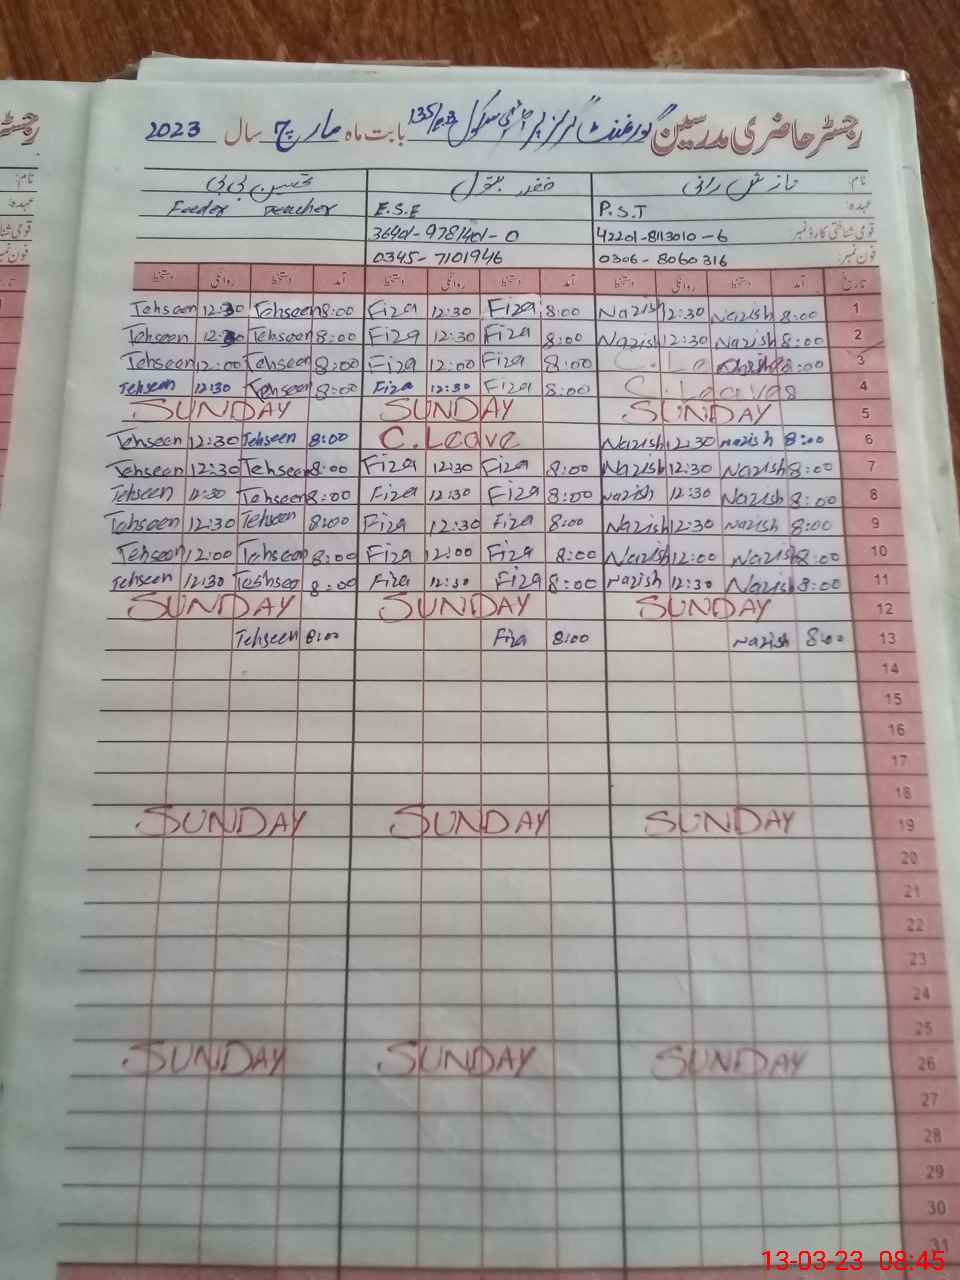 رجسٹر حاضری مدرسین گورنمنٹ گرلز پرائمری سکول 135/ بابت ماہ مارچ سال 2023
نام: نازش رانی فضہ بتول تحسین بی بی
عہدہ: P.S.T E.S.E Feeder Teacher
قومی شناختی کارڈ نمبر: 42201-8113010-6 36401-9781401-0
فون نمبر: 0306-8060316 0345-7101946
تاریخ آمد دستخط روانگی دستخط آمد دستخط روانگی دستخط آمد دستخط روانگی دستخط
Tehseen 12:30 Tehseen 8:00 Fiza 12:30 Fiza 8:00 Nazish 12:30 Nazish 8:00 1
Tehseen 12:30 Tehseen 8:00 Fiza 12:30 Fiza 8:00 Nazish 12:30 Nazish 8:00 2
Tehseen 12:00 Tehseen 8:00 Fiza 12:00 Fiza 8:00 C.Le 8:00 3
Tehseen 12:30 Tehseen 8:00 Fiza 12:30 Fiza 8:00 C.Leaves 4
SUNDAY SUNDAY SUNDAY 5
Tehseen 12:30 Tehseen 8:00 C.Leave Nazish 12:30 Nazish 8:00 6
Tehseen 12:30 Tehseen 8:00 Fiza 12:30 Fiza 8:00 Nazish 12:30 Nazish 8:00 7
Tehseen 12:30 Tehseen 8:00 Fiza 12:30 Fiza 8:00 Nazish 12:30 Nazish 8:00 8
Tehseen 12:30 Tehseen 8:00 Fiza 12:30 Fiza 8:00 Nazish 12:30 Nazish 8:00 9
Tehseen 12:00 Tehseen 8:00 Fiza 12:00 Fiza 8:00 Nazish 12:00 Nazish 8:00 10
Tehseen 12:30 Teshsea 8:00 Fiza 12:30 Fiza 8:00 Nazish 12:30 Nazish 8:00 11
SUNDAY SUNDAY SUNDAY 12
Tehseen 8:00 Fiza 8:00 Nazish 8:00 13
14
15
16
17
18
SUNDAY SUNDAY SUNDAY 19
20
21
22
23
24
25
SUNDAY SUNDAY SUNDAY 26
27
28
29
30
31
13-03-23 08:45